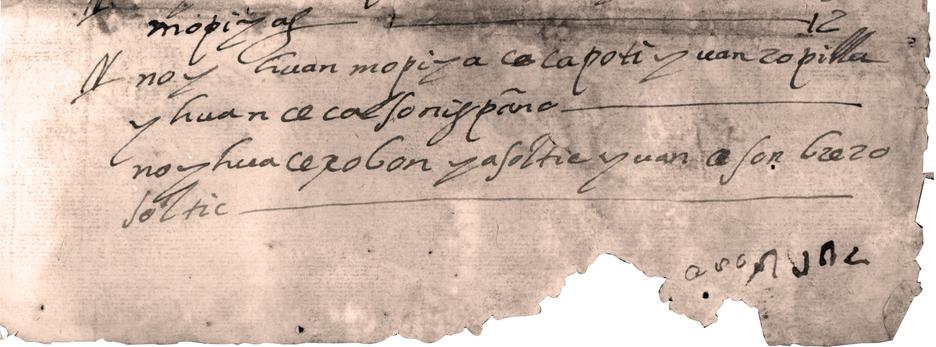 mopiyas 12
noyhuan mopiya ce capoti yuan ropilla
yhuan ce calsonispāno
noyhua ce xobon yasoltic yuan ce sonbrero
soltic